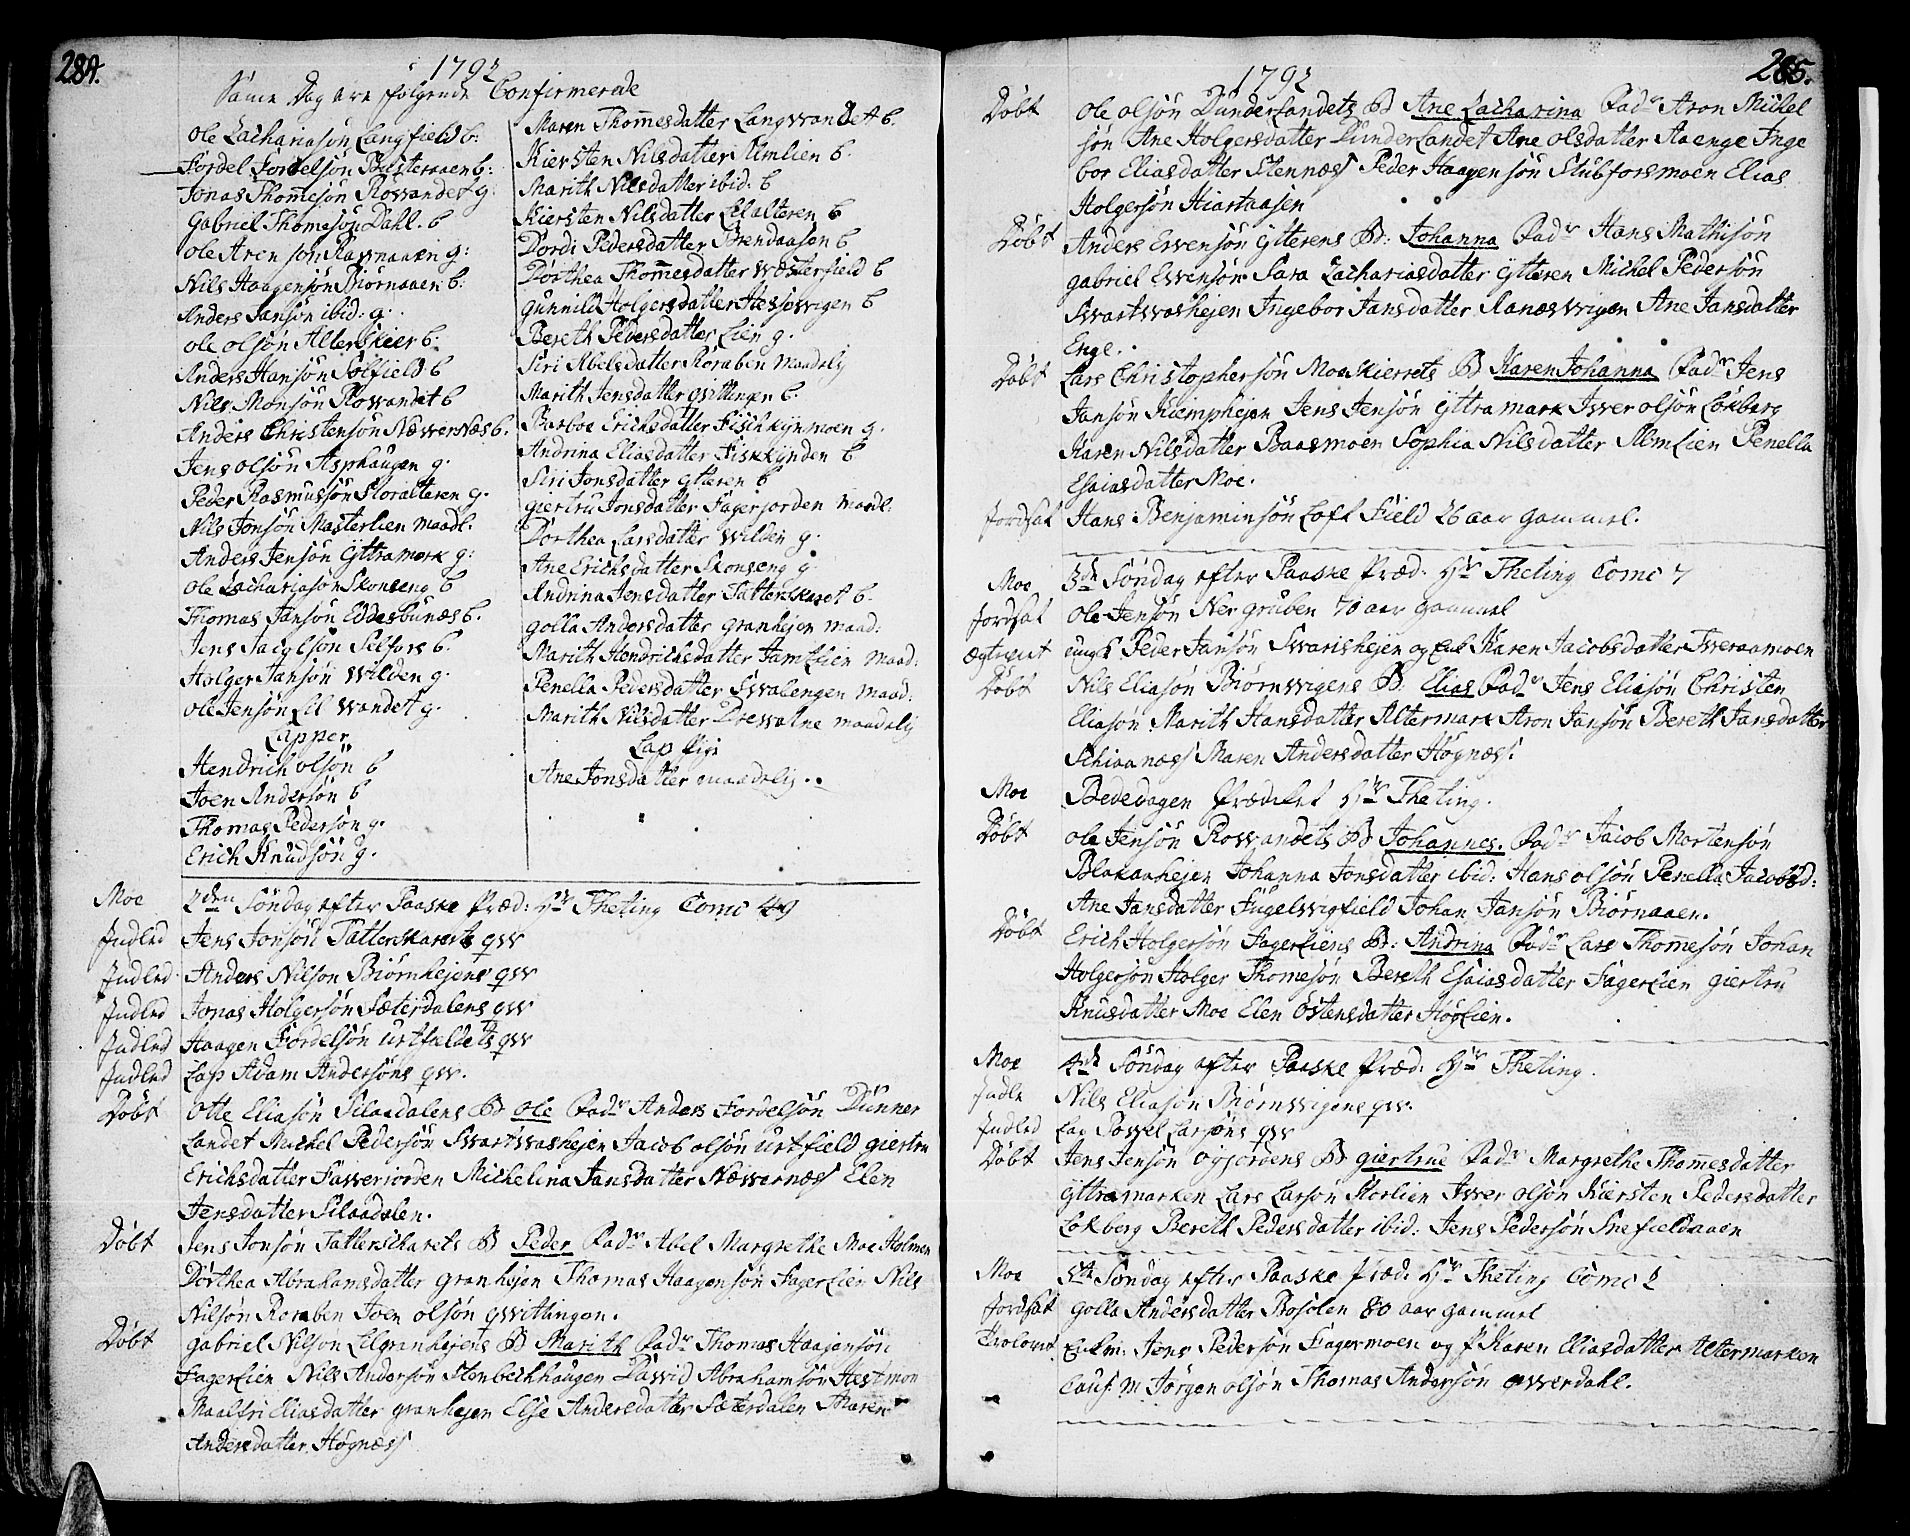 284.
1792
Same Dag ere følgende Confirmerede
Ole Zachariasøn Langfield b:
Fordel Fordelsøn Bustераaen b:
Jonas Thomesøn Røsvandet g:
Gabriel Thomesøn Dahl. b
Ole Aronsøn Ravnaaen g:
Nils Haagensøn Biørnaaen b:
Anders Jansøn ibid: g.
Ole Olsøn Alterskier b:
Anders Hansøn Sølfield b
Nils Monsøn Røsvandet b
Anders Christensøn Næsvernæs b.
Jens Olsøn Asphaugen g.
Peder Rasmussøn Storalteren g.
Nils Jonsøn Masterlien maadl.
Anders Jensøn Yttramark g:
Ole Zachariasøn Skonseng b
Thomas Jansøn Eddesbunæs b.
Jens Jacobsøn Selfors b.
Holger Jansøn Wilden g.
Ole Jensøn Lilwandet g.
Lapper
Hendrich Olsøn b
Joen Andersøn b
Thomas Pedersøn g.
Erich Knudsøn g.
Maren Thomesdatter Langvandet b.
Kiersten Nilsdatter Almlien b.
Marith Nilsdatter ibid: b
Kiersten Nilsdatter Lilalteren b
Dordi Pedersdatter Brendaasen b
Dorthea Thomesdatter Wæsterfield b
Gunnild Holgersdatter Hesjevigen b
Bereth Pedersdatter Lien g.
Siri Abelsdatter Røraben maadelig
Marith Jensdatter Qvittingen b.
Barboe Erichsdatter Fischkynmoen g.
Andrina Eliasdatter Fiskkynden b
Siri Jonsdatter Ytteren b
Giertru Jonsdatter Fagerjorden maadl.
Dorthea Larsdatter Wilden g.
Ane Erichsdatter Skonseng g.
Andrina Jensdatter Tatterskaret b.
Golla Andersdatter Granhejen maad:
Marith Hendrichsdatter Jamtlien maad:
Penella Pedersdatter Svalengen maad:
Marith Nilsdatter Drevatne maadelig
Lap Pige
Ane Jonsdatter maadelig..
Moe 2den Søndag efter Paaske Præd: Hr Theting Comc 49
Indled Jens Jonsøn Tatterskarets qv
Indled Anders Nilsøn Biørnhejens qv
Indled Jonas Holgersøn Sæterdalens qv
Indled Haagen Fordelsøn Urtfieldets qv
Indled Lap Adam Andersøns qv.
Døbt Otte Eliasøn Silaadalens B Ole Fadr Anders Fordelsøn Dunner
Landet Michel Pedersøn Svartvashejen Jacob Olsøn Urtfield Giertru
Erichsdatter Favverjorden Michelina Jansdatter Næsvernæs Elen
Jensdatter Silaadalen.
Døbt Jens Jonsøn Tatterskarets B Peder Fadr Abel Margrethe Moe Holmen
Dorthea Abrahamsdatter Granhejen Thomas Haagensøn Fagerlien Nils
Nilsøn Røraben Joen Olsøn Qvittingen.
Døbt Gabriel Nilsøn Lilgranhejens B Marith Fadr Thomas Haagensøn
Fagerlien Nils Andersøn Stenbechhaugen David Abrahamsøn Hestmon
Maalfri Eliasdatter Granhejen Else Andersdatter Sæterdalen Maren
Andersdatter Høgnæs
285.
1792
Døbt Ole Olsøn Dunderlandets B Ane Zacharina Fadr Aron Michel
søn Ane Holgersdatter Dunderlandet Ane Olsdatter Aaenge Inge
bor Eliasdatter Stennæs Peder Haagensøn Stubforsmoen Elias
Holgersøn Hiartaasen
Døbt Anders Evensøn Ytterens B: Johanna Fadr Hans Mathisøn
Gabriel Evensøn Sara Zachariasdatter Ytteren Michel Pedersøn
Svartvashejen Ingebor Jansdatter Ranesvigen Ane Jansdatter
Enge.
Døbt Lars Christophersøn Moeskierets B Karen Johanna Fadr Jens
Jansøn Kiemphejen Jens Jensøn Yttramark Iver Olsøn Løkberg
Karen Nilsdatter Baasmoen Sophia Nilsdatter Almlien Penella
Esaiasdatter Moe.
Jordfat Hans Benjaminsøn Loftfield 26 aar gammel.
Moe 3de Søndag efter Paaske Præd. Hr Theting Comc 7
Jordfat Ole Jensøn Nergruben 70 aar gammel
Ægteviet ungk Peder Jansøn Svartshejen og Enk Karen Jacobsdatter Tveraamoen
Døbt Nils Eliasøn Biørnvigens B. Elias Fadr Jens Eliasøn Christen
Eliasøn Marith Hansdatter Altermark Aron Jansøn Bereth Jansdatter
Schioanæs Maren Andersdatter Høgnæs.
Moe Bededagen Prædiket Hr Theting.
Døbt Ole Jensøn Røsvandets B Johannes. Fadr Jacob Mortensøn
Blakaahejen Johanna Jonsdatter ibid: Hans Olsøn Penella Jacobsd:
Ane Jansdatter Fugelvigfield Johan Jansøn Biørnaaen.
Døbt Erich Holgersøn Fagerliens B: Andrina Fadr Lars Thomesøn Johan
Holgersøn Holger Thomesøn Bereth Esaiasdatter Fagerlien Giertru
Knusdatter Moe Elen Østensdatter Høglien.
Moe 4de Søndag efter Paaske Præd: Hr Theting.
Indle Nils Eliasøn Biørnvigens qv.
Indled Lap Povel Larsøns qv
Døbt Jens Jensøn Øyjordens B Giertrue Fadr Margrethe Thomesdatter
Yttramarken Lars Larsøn Storlien Iver Olsøn Kiersten Pedersdatter
Løkberg Bereth Pedersdatter ibid: Jens Pedersøn Snefieldaaen
Moe 5te Søndag efter Paaske Præd: Hr Theting Comc 2
Jordfat Golla Andersdatter Røsolen 80 aar gammel
Trolovet Enkm: Jens Pedersøn Fagermoen og P Karen Eliasdatter Altermarken
Cauf M Jørgen Olsøn Thomas Andersøn Øverdahl.